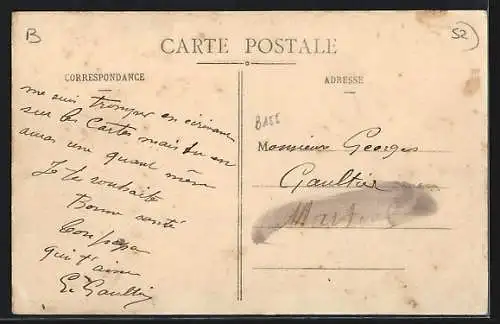 B
52
CARTE POSTALE
CORRESPONDANCE
ADRESSE
me suis tromper en écrivant
sur les Cartes mais tu en
auras une quand même
Je te souhaite
Bonne santé
ton papa
qui t'aime
G. Gaultier
BASS
Monsieur Georges
Gaultier